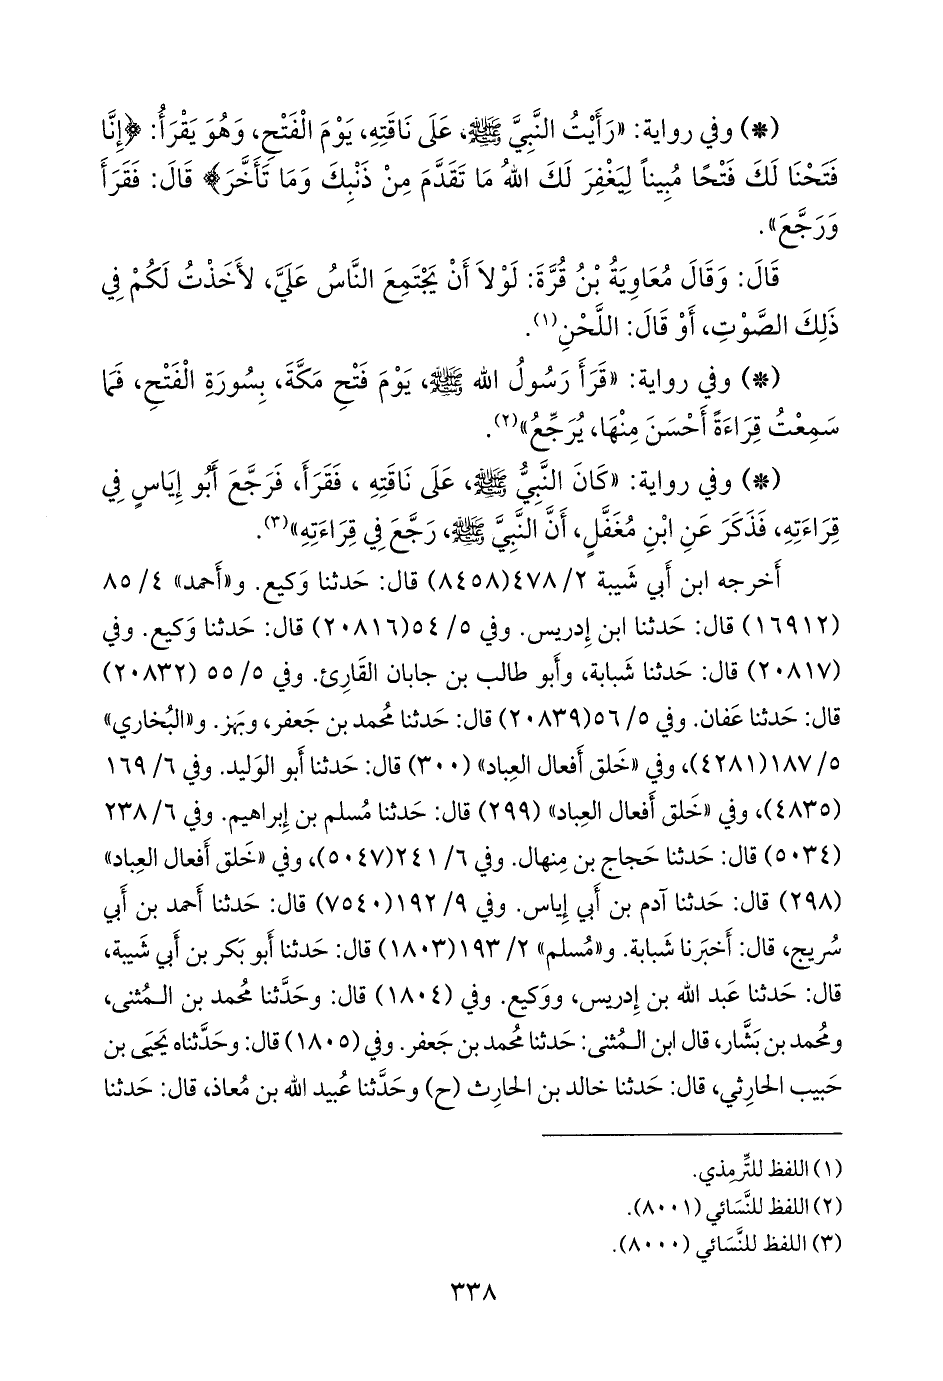 (*) وفي رواية: «رَأَيْتُ النَّبِيَّ ﷺ، عَلَى نَاقَتِهِ، يَوْمَ الْفَتْحِ، وَهُوَ يَقْرَأُ: ﴿إِنَّا
فَتَحْنَا لَكَ فَتْحًا مُبِيناً لِيَغْفِرَ لَكَ اللهُ مَا تَقَدَّمَ مِنْ ذَنْبِكَ وَمَا تَأَخَّرَ﴾ قَالَ: فَقَرَأَ
وَرَجَّعَ».
قَالَ: وَقَالَ مُعَاوِيَةُ بْنُ قُرَّةَ: لَوْلاَ أَنْ يَجْتَمِعَ النَّاسُ عَلَيَّ، لأَخَذْتُ لَكُمْ فِي
ذَلِكَ الصَّوْتِ، أَوْ قَالَ: اللَّحْنِ(١).
(*) وفي رواية: «قَرَأَ رَسُولُ الله ﷺ، يَوْمَ فَتْحِ مَكَّةَ، بِسُورَةِ الْفَتْحِ، فَمَا
سَمِعْتُ قِرَاءَةً أَحْسَنَ مِنْهَا، يُرَجِّعُ»(٢).
(*) وفي رواية: «كَانَ النَّبِيُّ ﷺ، عَلَى نَاقَتِهِ ، فَقَرَأَ، فَرَجَّعَ أَبُو إِيَاسٍ فِي
قِرَاءَتِهِ، فَذَكَرَ عَنِ ابْنِ مُغَفَّلٍ، أَنَّ النَّبِيَّ ﷺ، رَجَّعَ فِي قِرَاءَتِهِ»(٣).
أَخرجه ابن أَبي شَيبة ٢/ ٤٧٨(٨٤٥٨) قال: حَدثنا وَكيع. و«أَحمد» ٤/ ٨٥
(١٦٩١٢) قال: حَدثنا ابن إِدريس. وفي ٥/ ٥٤(٢٠٨١٦) قال: حَدثنا وَكيع. وفي
(٢٠٨١٧) قال: حَدثنا شَبابة، وأَبو طالب بن جابان القَارِئ. وفي ٥/ ٥٥ (٢٠٨٣٢)
قال: حَدثنا عَفان. وفي ٥/ ٥٦(٢٠٨٣٩) قال: حَدثنا مُحمد بن جَعفر، وبَهز. و«البُخاري»
٥/ ١٨٧(٤٢٨١)، وفي «خَلق أَفعال العِباد» (٣٠٠) قال: حَدثنا أَبو الوَليد. وفي ٦/ ١٦٩
(٤٨٣٥)، وفي «خَلق أَفعال العِباد» (٢٩٩) قال: حَدثنا مُسلم بن إِبراهيم. وفي ٦/ ٢٣٨
(٥٠٣٤) قال: حَدثنا حَجاج بن مِنهال. وفي ٦/ ٢٤١(٥٠٤٧)، وفي «خَلق أَفعال العِباد»
(٢٩٨) قال: حَدثنا آدم بن أَبي إِياس. وفي ٩/ ١٩٢(٧٥٤٠) قال: حَدثنا أَحمد بن أَبي
سُريج، قال: أَخبَرنا شَبابة. و«مُسلم» ٢/ ١٩٣(١٨٠٣) قال: حَدثنا أَبو بَكر بن أَبي شَيبة،
قال: حَدثنا عَبد الله بن إِدريس، ووَكيع. وفي (١٨٠٤) قال: وحَدَّثنا مُحمد بن الـمُثنى،
ومُحمد بن بَشَّار، قال ابن الـمُثنى: حَدثنا مُحمد بن جَعفر. وفي (١٨٠٥) قال: وحَدَّثناه يَحيَى بن
حَبيب الحارِثي، قال: حَدثنا خالد بن الحارِث (ح) وحَدَّثنا عُبيد الله بن مُعاذ، قال: حَدثنا
(١) اللفظ للتِّرمِذي.
(٢) اللفظ للنَّسَائي (٨٠٠١).
(٣) اللفظ للنَّسَائي (٨٠٠٠).
٣٣٨